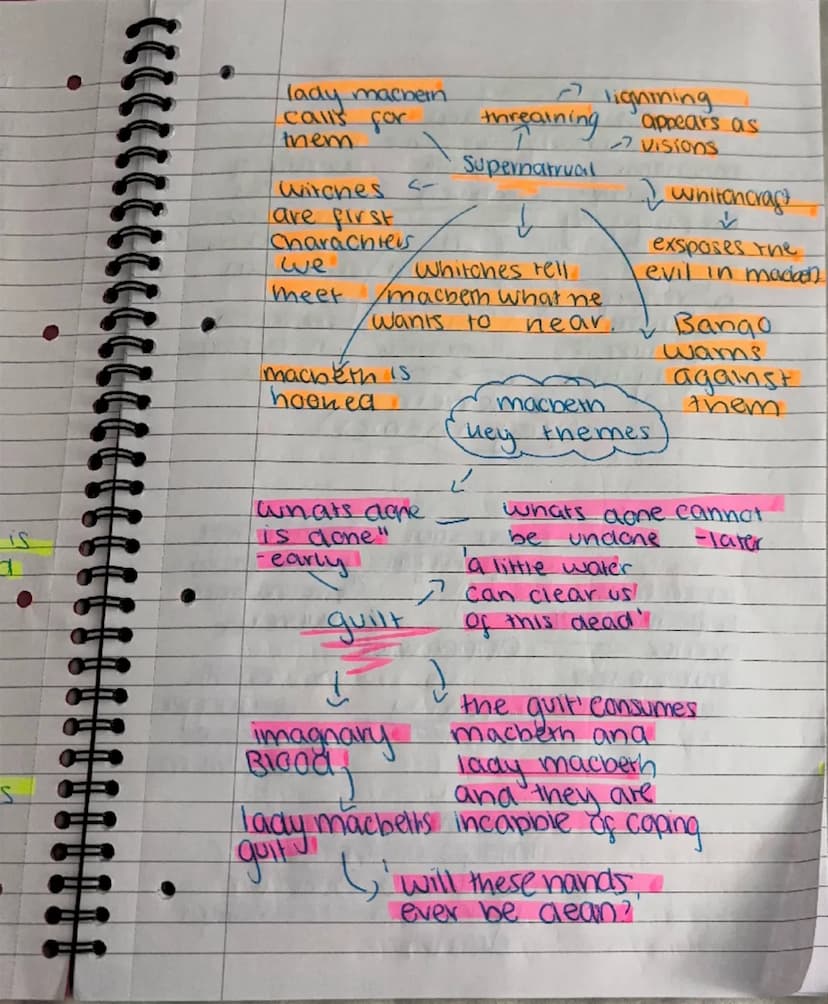 lady macbeth
calls for
them
threatning
lightning
appears as
visions
supernatrual
witches
are first
charachters
we
meet
whitchcraft
exsposes the
evil in macbeth
whitches tell
macbeth what he
wants to hear.
Banqo
warns
against
them
macbeth is
hooked
macbeth
key themes
whats done
is done"
-early
whats done cannot
be undone -later
'a little water
can clear us
of this dead'
guilt
imagnary
Blood
the guilt consumes
macbeth and
lady macbeth
and they are
incapible of coping
lady macbeths
guilt
'will these hands
ever be clean?
is
d
s